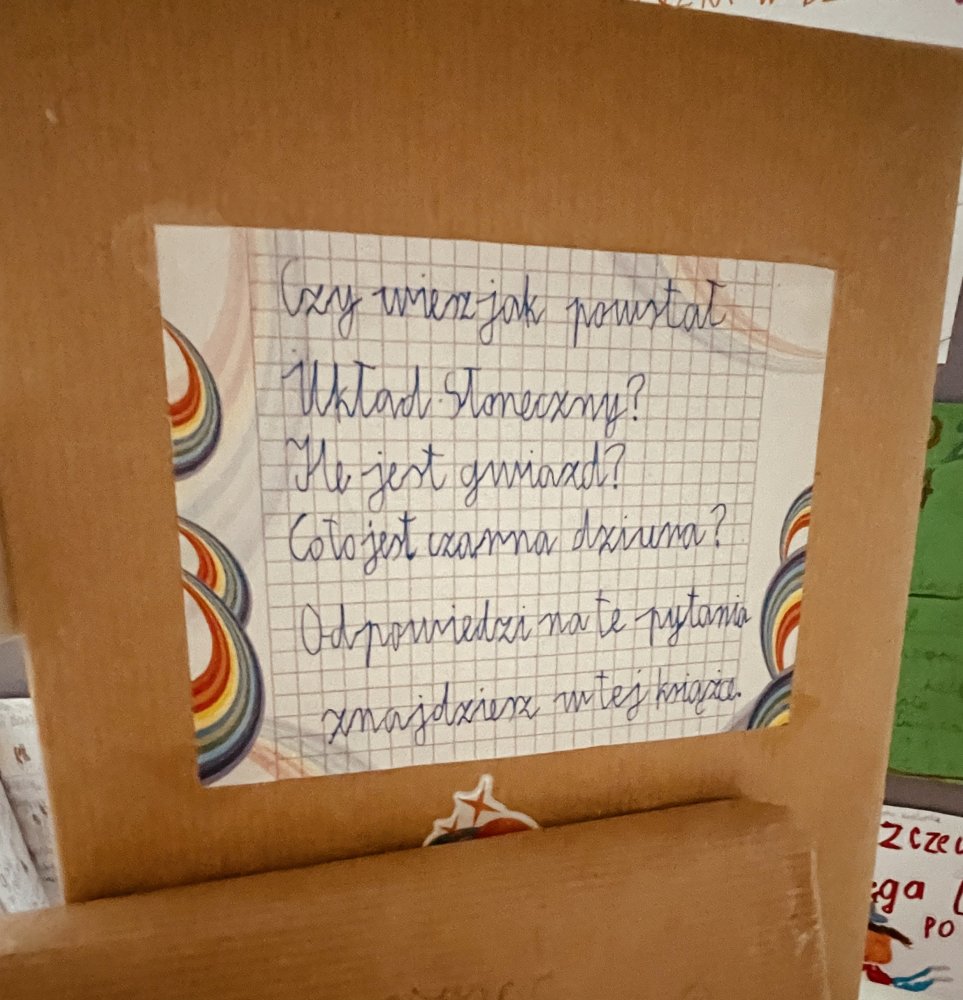 Czy wiesz jak powstał
Układ Słoneczny?
Ile jest gwiazd?
Co to jest czarna dziura?
Odpowiedzi na te pytania
znajdziesz w tej książce.
zczeu
ga
PO